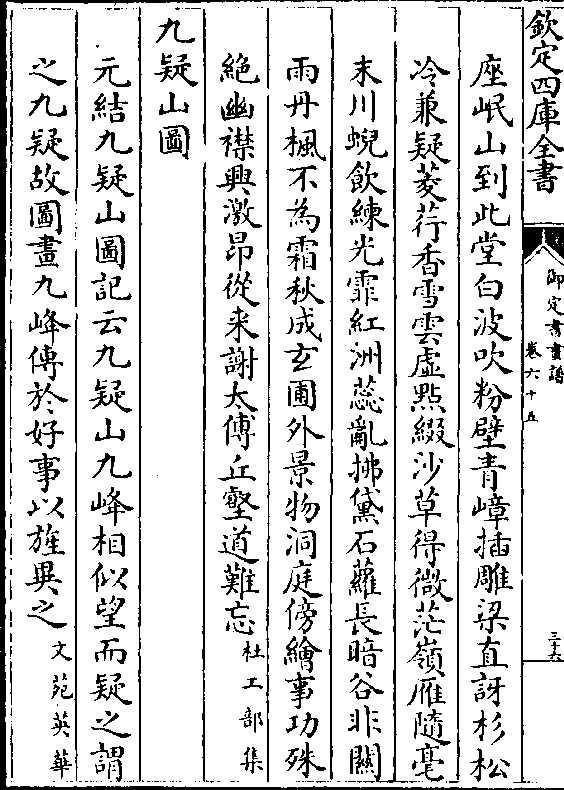 欽定四庫全書
御定書畫譜
卷六十五
三十六
座岷山到此堂白波吹粉壁青嶂插雕梁直訝杉松
冷兼疑菱荇香雪雲虛點綴沙草得微茫嶺雁隨毫
末川蜺飲練光霏紅洲蕊亂拂黛石蘿長暗谷非關
雨丹楓不為霜秋成玄圃外景物洞庭傍繪事功殊
絶幽襟興激昂從来謝太傅丘壑道難忘杜工部集
九疑山圖
元結九疑山圖記云九疑山九峰相似望而疑之謂
之九疑故圖畫九峰傳於好事以旌異之文苑英華